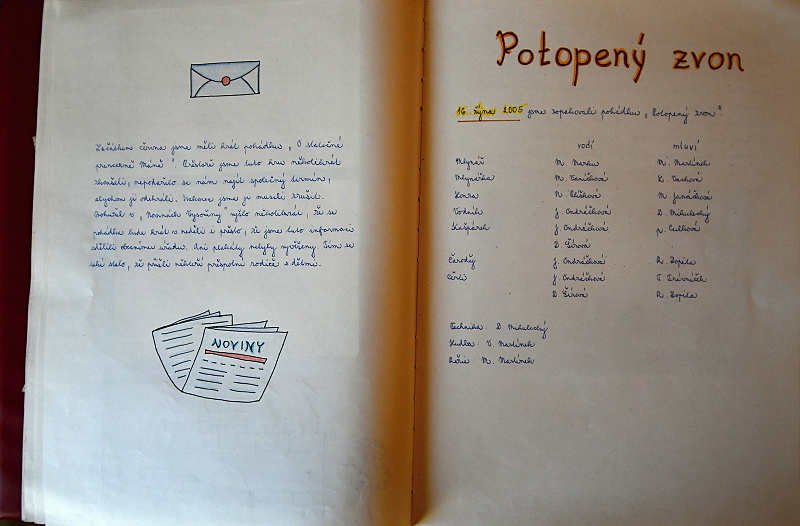 Začátkem června jsme měli hrát pohádku „O statečné
princezně Máně". Přestože jsme tuto hru několikrát
zkoušeli, nepodařilo se nám najít společný termín,
abychom ji odehráli. Nakonec jsme ji museli zrušit.
Bohužel v „Novinách Vysočiny" vyšlo několikrát, že se
pohádka bude hrát v neděli i přesto, že jsme tuto informaci
sdělili obecnímu úřadu. Ani plakáty nebyly vyvěšeny. Tím se
také stalo, že přišli někteří přespolní rodiče s dětmi.
NOVINY
Potopený zvon
16. října 2005 jsme zopakovali pohádku „Potopený zvon".
vodí mluví
Mlynář M. M. Martínek
Mlynářka M. K.
Honza N. M. Janáčková
Vodník J. Ondráčková D. Mikulecký
Kašpárek J. Ondráčková
D. Šírová
Čaroděj J. Ondráčková R. Dopita
Čerti J. Ondráčková T. Trávníček
D. Šírová R. Dopita
Technika: D. Mikulecký
Hudba: V. Martínek
Režie M. Martínek